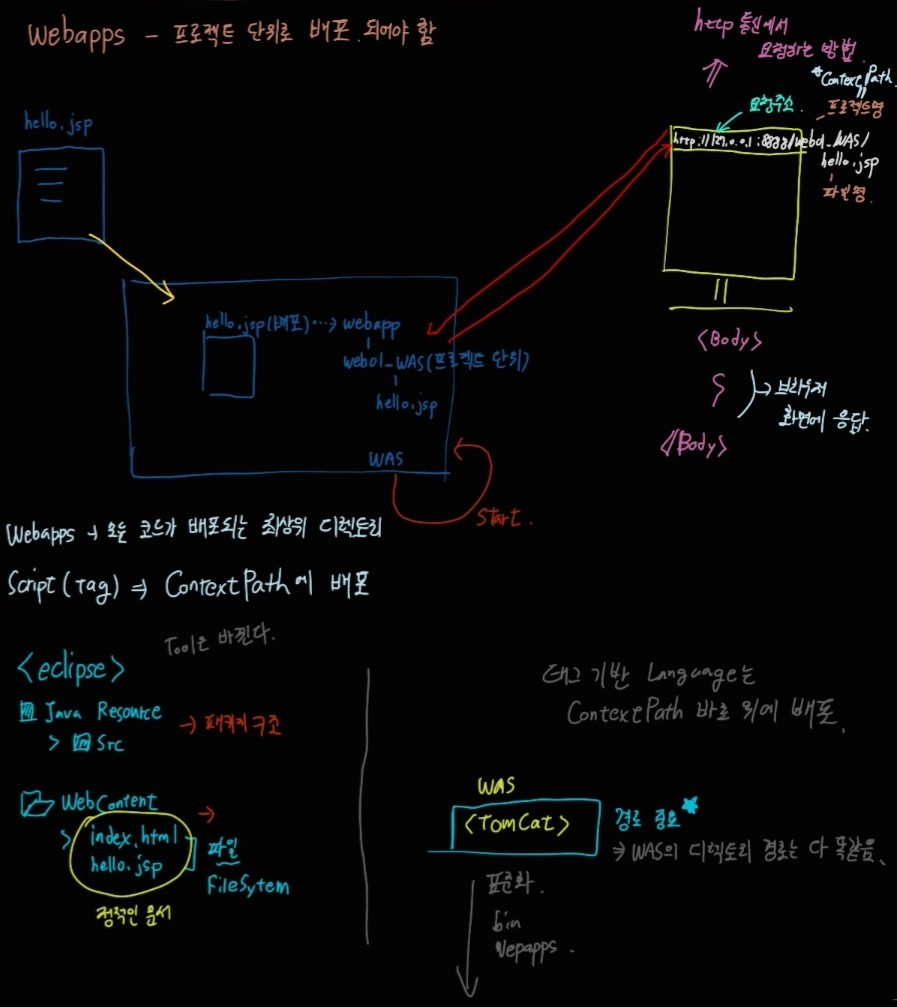 Webapps - 프로젝트 단위로 배포 되어야 함
http 통신에서
요청하는 방법.
*ContextPath.
요청주소.
프로젝트명
hello.jsp
http://127.0.0.1:8888/web01_WAS/
hello.jsp
파일명.
hello.jsp(배포) ···→ webapp
web01_WAS(프로젝트 단위)
hello.jsp
WAS
Start.
<Body>
→ 브라우저
화면에 응답.
</Body>
Webapps → 모든 코드가 배포되는 최상위 디렉토리
Script(Tag) ⇒ ContextPath에 배포
Tool은 바뀐다.
<eclipse>
Java Resource
→ 패키지 구조
> Src
WebContent
→
> index.html
hello.jsp
파일
FileSytem
정적인 문서
태그 기반 Language는
ContextPath 바로 위에 배포.
WAS
<TomCat>
경로 중요★
⇒ WAS의 디렉토리 경로는 다 똑같음.
표준화.
bin
Wepapps.